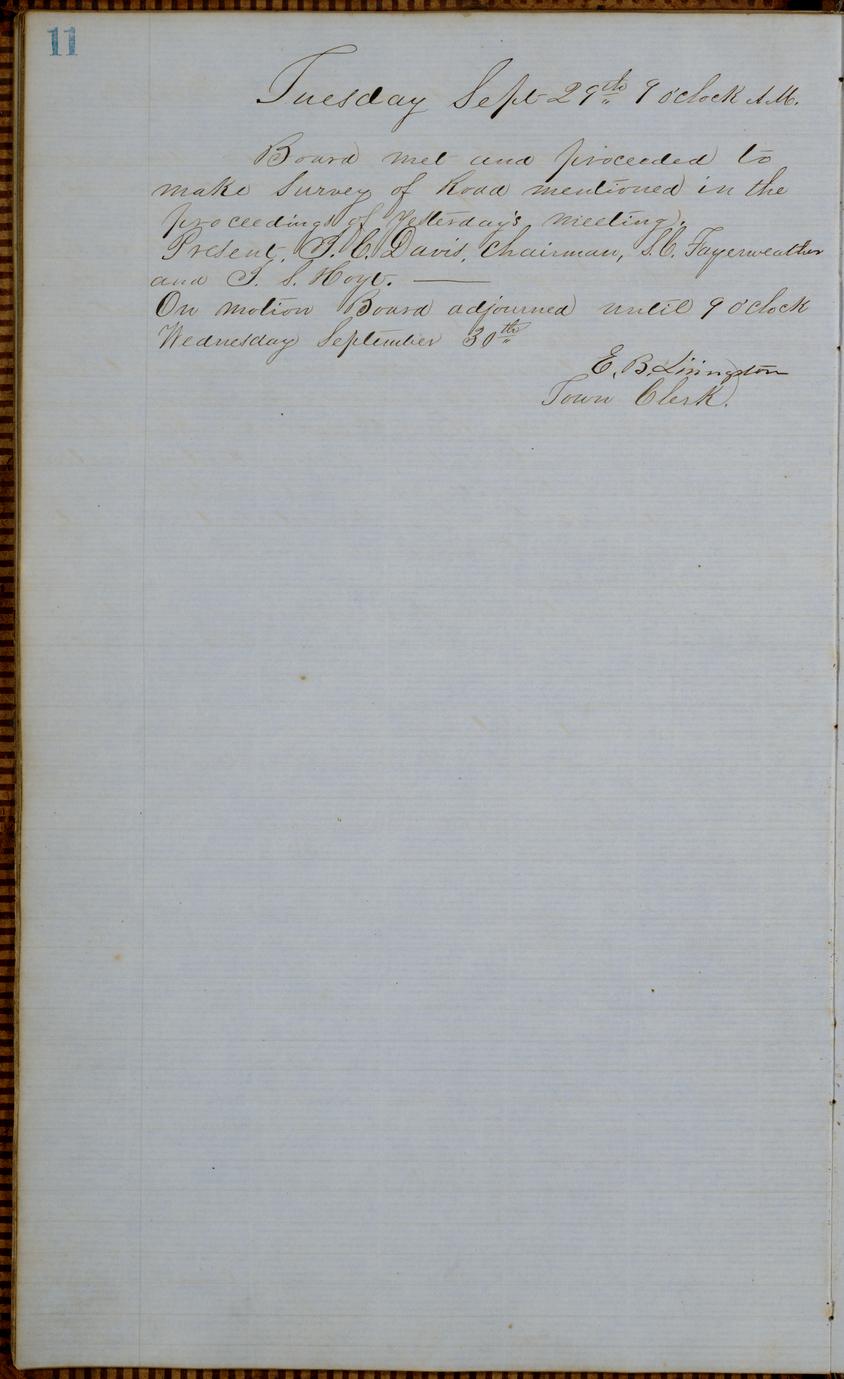 11
Tuesday Sept 29th 9 o'clock A.M.
Board met and proceeded to
make Survey of Road mentioned in the
proceedings of Yesterday's meeting.
Present, T. C. Davis, Chairman, S. C. Fayerweather
and T. S. Hoyt. —
On motion Board adjourned until 9 o'clock
Wednesday September 30th
E. B. Livingston
Town Clerk.